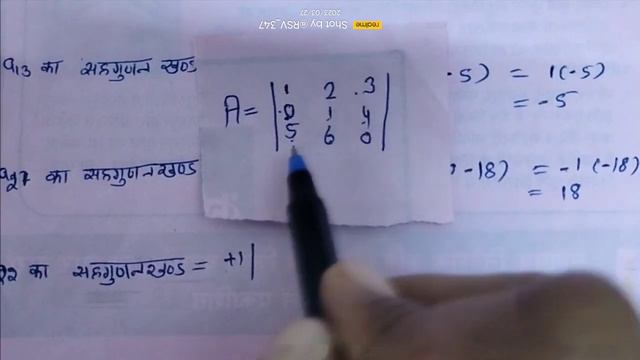 realme Shot by @RSV_347
2023/03/27
a13 का सहगुणन खण्ड
-5) = 1(-5)
= -5
A = | 1 2 3 |
| 0 1 4 |
| 5 6 0 |
का सहगुणनखण्ड
-18) = -1 (-18)
= 18
का सहगुणनखण्ड = +1|